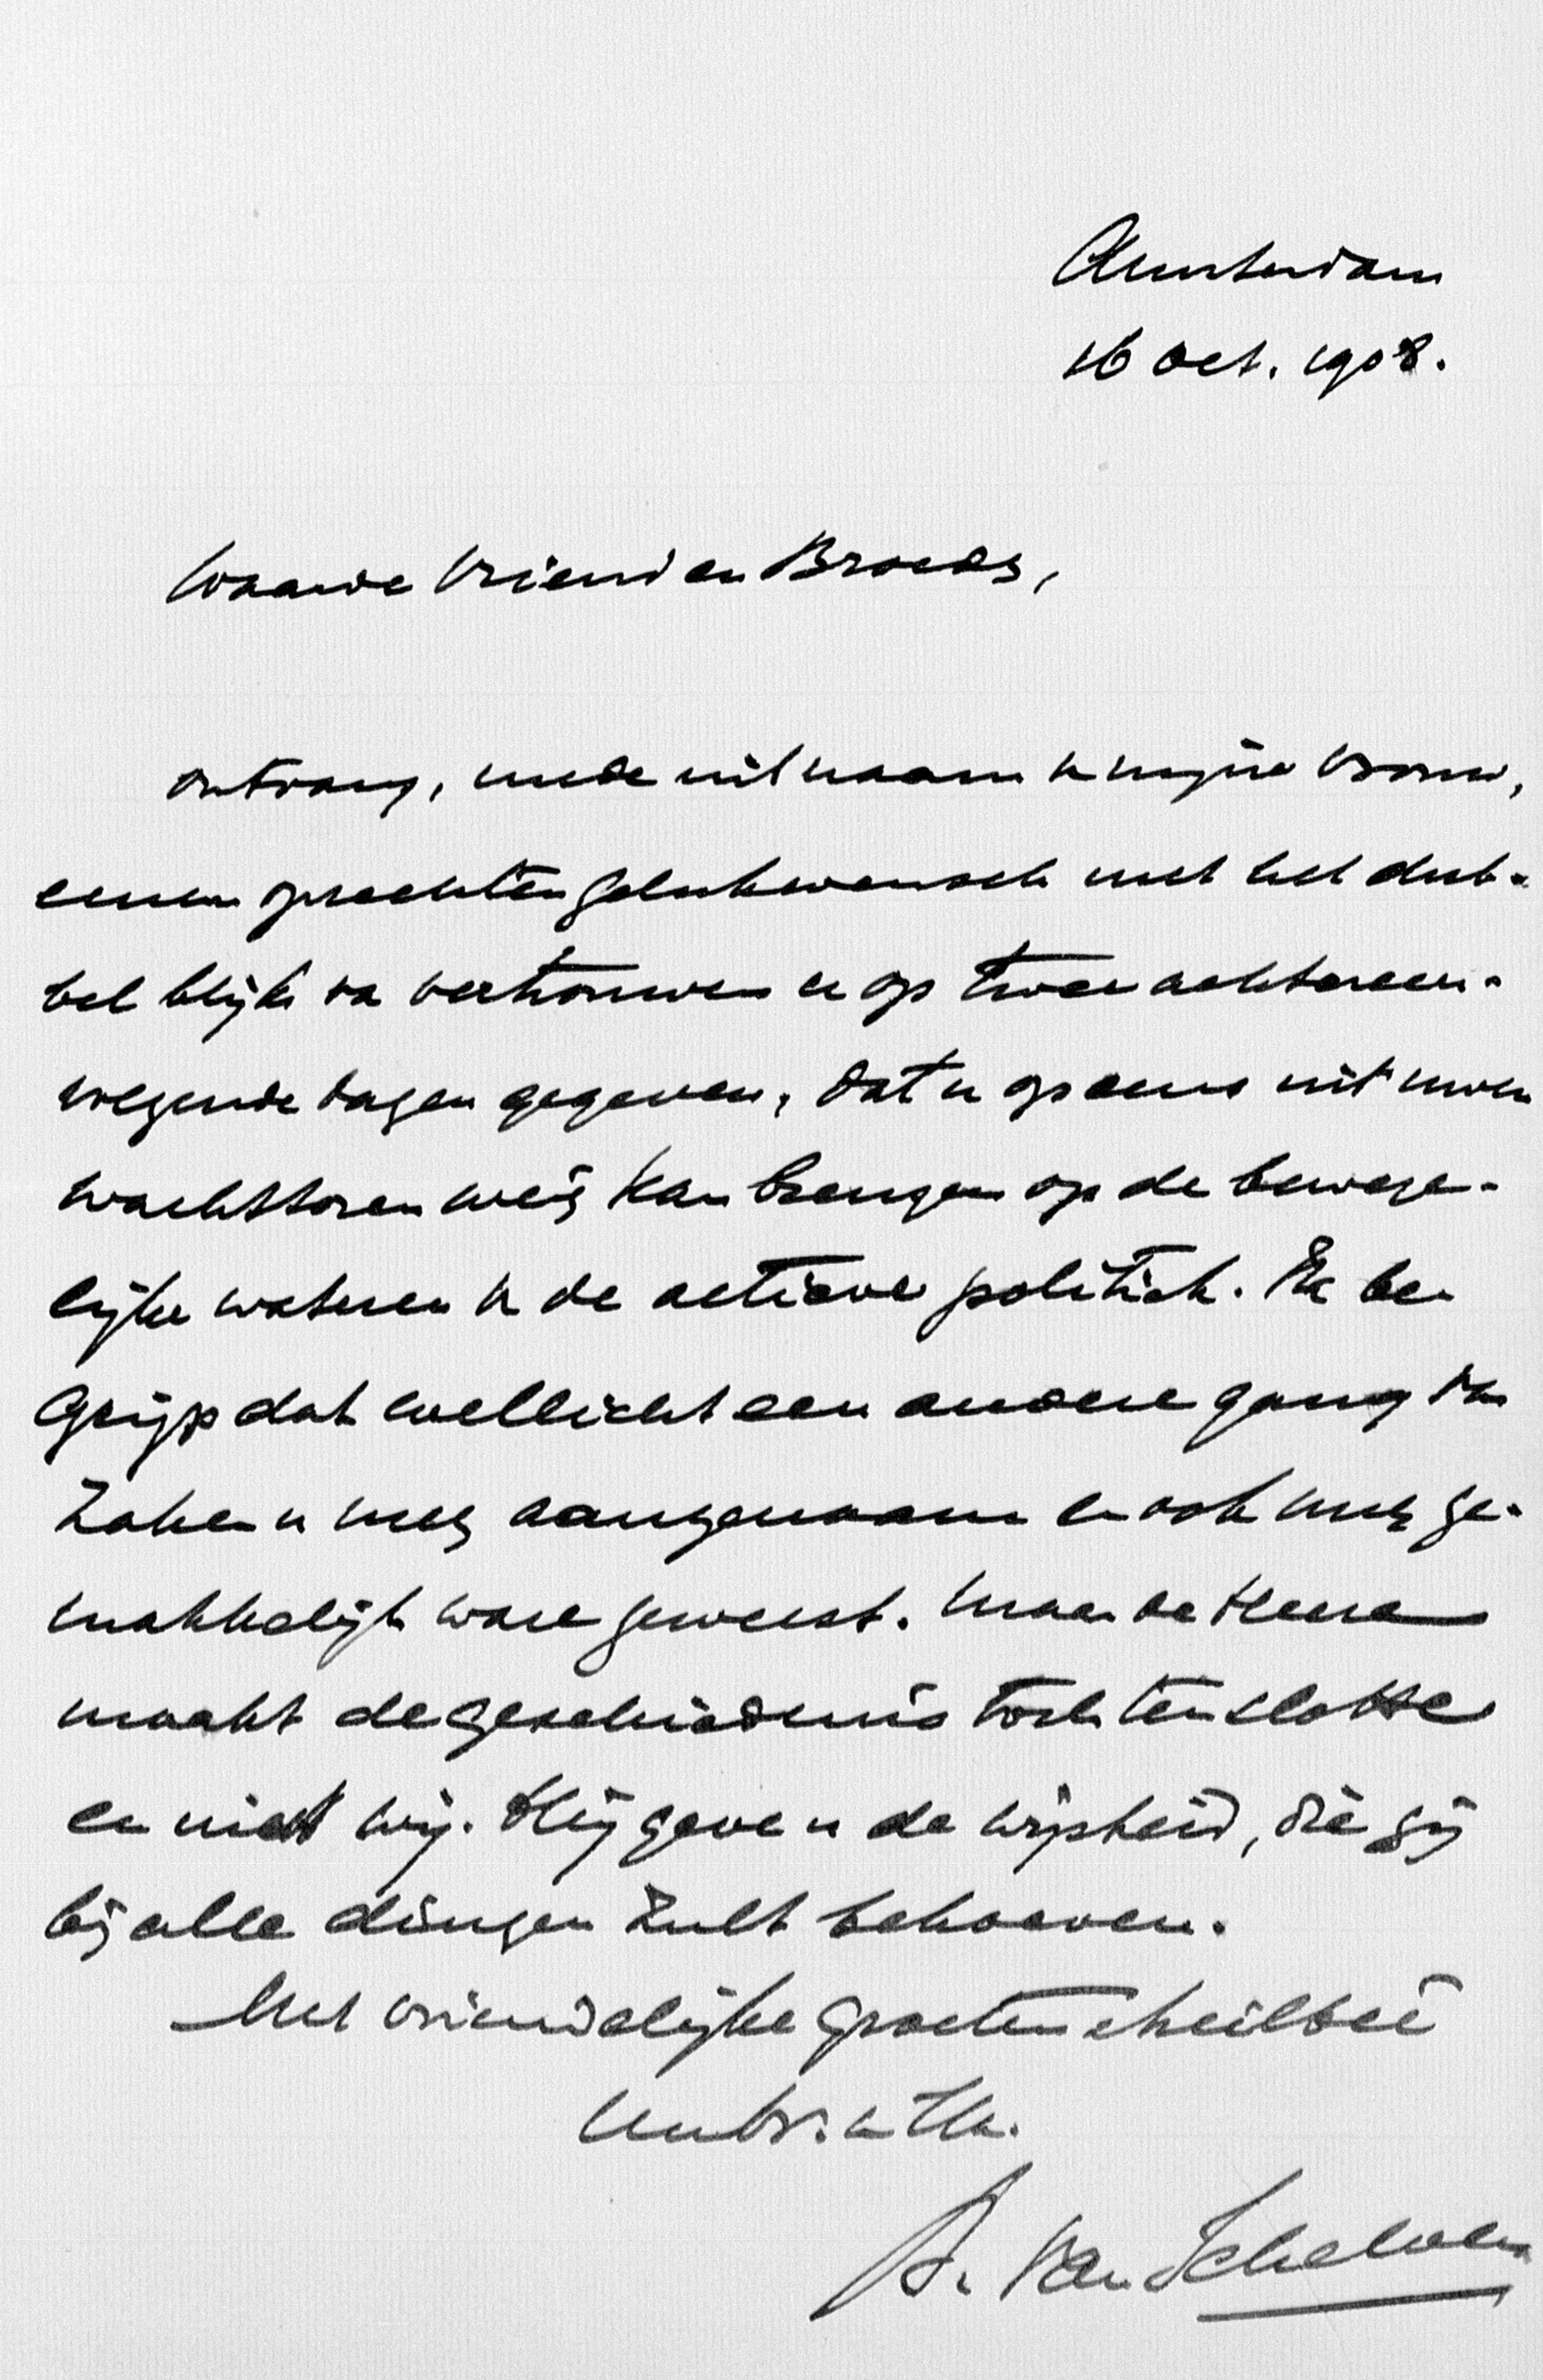 Amsterdam
16 Oct. 1908.
Waarde Vriend en Broeder,
ontvang, mede uit naam v. mijne vrouw,
eenen oprechten gelukwensch met het dub-
bel blijk van vertrouwen u op twee achtereen-
volgende dagen gegeven, dat u opeens uit uwen
wachttoren weg kan brengen op de bewege-
lijke wateren v. de actieve politiek. Ik be-
grijp dat wellicht een andere gang van
zaken u meer aangenaam en ook meer ge-
makkelijk ware geweest. Maar de Heere
maakt de geschiedenis toch ten slotte
en niet wij. Hij geve u de wijsheid, die gij
bij alle dingen zult behoeven.
Met vriendelijke groeten & heilbeê
Uw br.
A. van Schelven